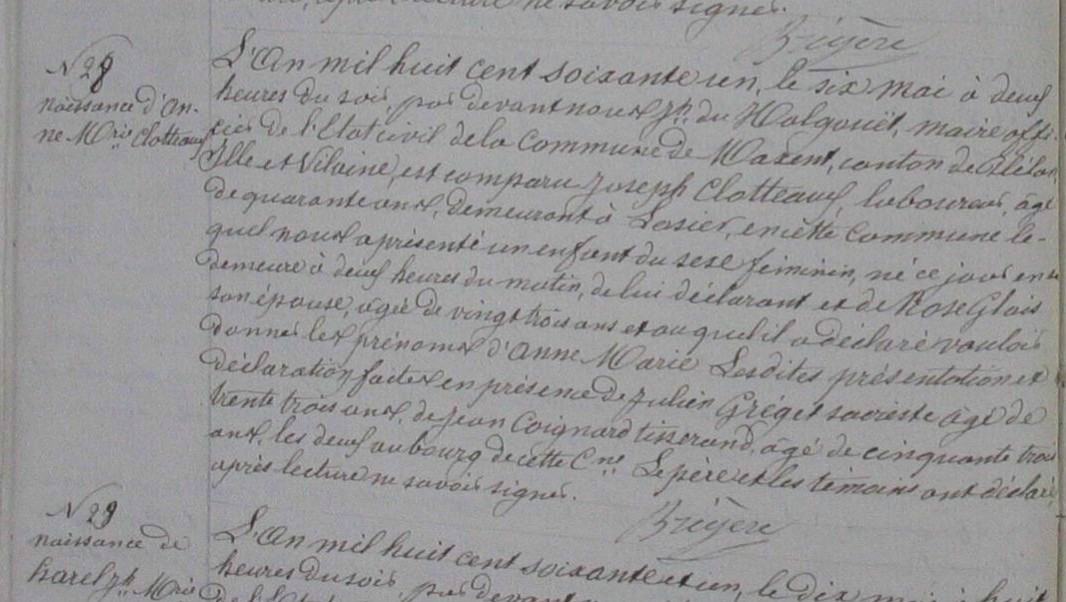 après lecture ne savoir signer.
Bruyère
N 28
naissance d'An-
ne Mrie Clotteaux
L'An mil huit cent soixante un, le six mai à deux
heures du soir, par devant nous Jh. du Halgouët, maire offi-
cier de l'Etat civil de la Commune de Maxent, canton de Plélan,
Ille et Vilaine, est comparu Joseph Clotteaux, laboureur, âgé
de quarante ans, demeurant à Losier, en cette Commune le-
quel nous a présenté un enfant du sexe féminin, né ce jour en sa
demeure à deux heures du matin, de lui déclarant et de Rose Glais
son épouse, âgée de vingt trois ans et auquel il a déclaré vouloir
donner les prénoms d'Anne Marie Lesdites présentation et
déclaration faites en présence de Julien Gréget sacriste âgé de
trente trois ans, de Jean Coignard tisserand, âgé de cinquante trois
ans, les deux au bourg de cette Cne. Le père et les témoins ont déclaré,
après lecture ne savoir signer.
Bruyère
N 29
naissance de
harel Jh. Mrie
L'An mil huit cent soixante et un, le dix mai à huit
heures du soir, par devant